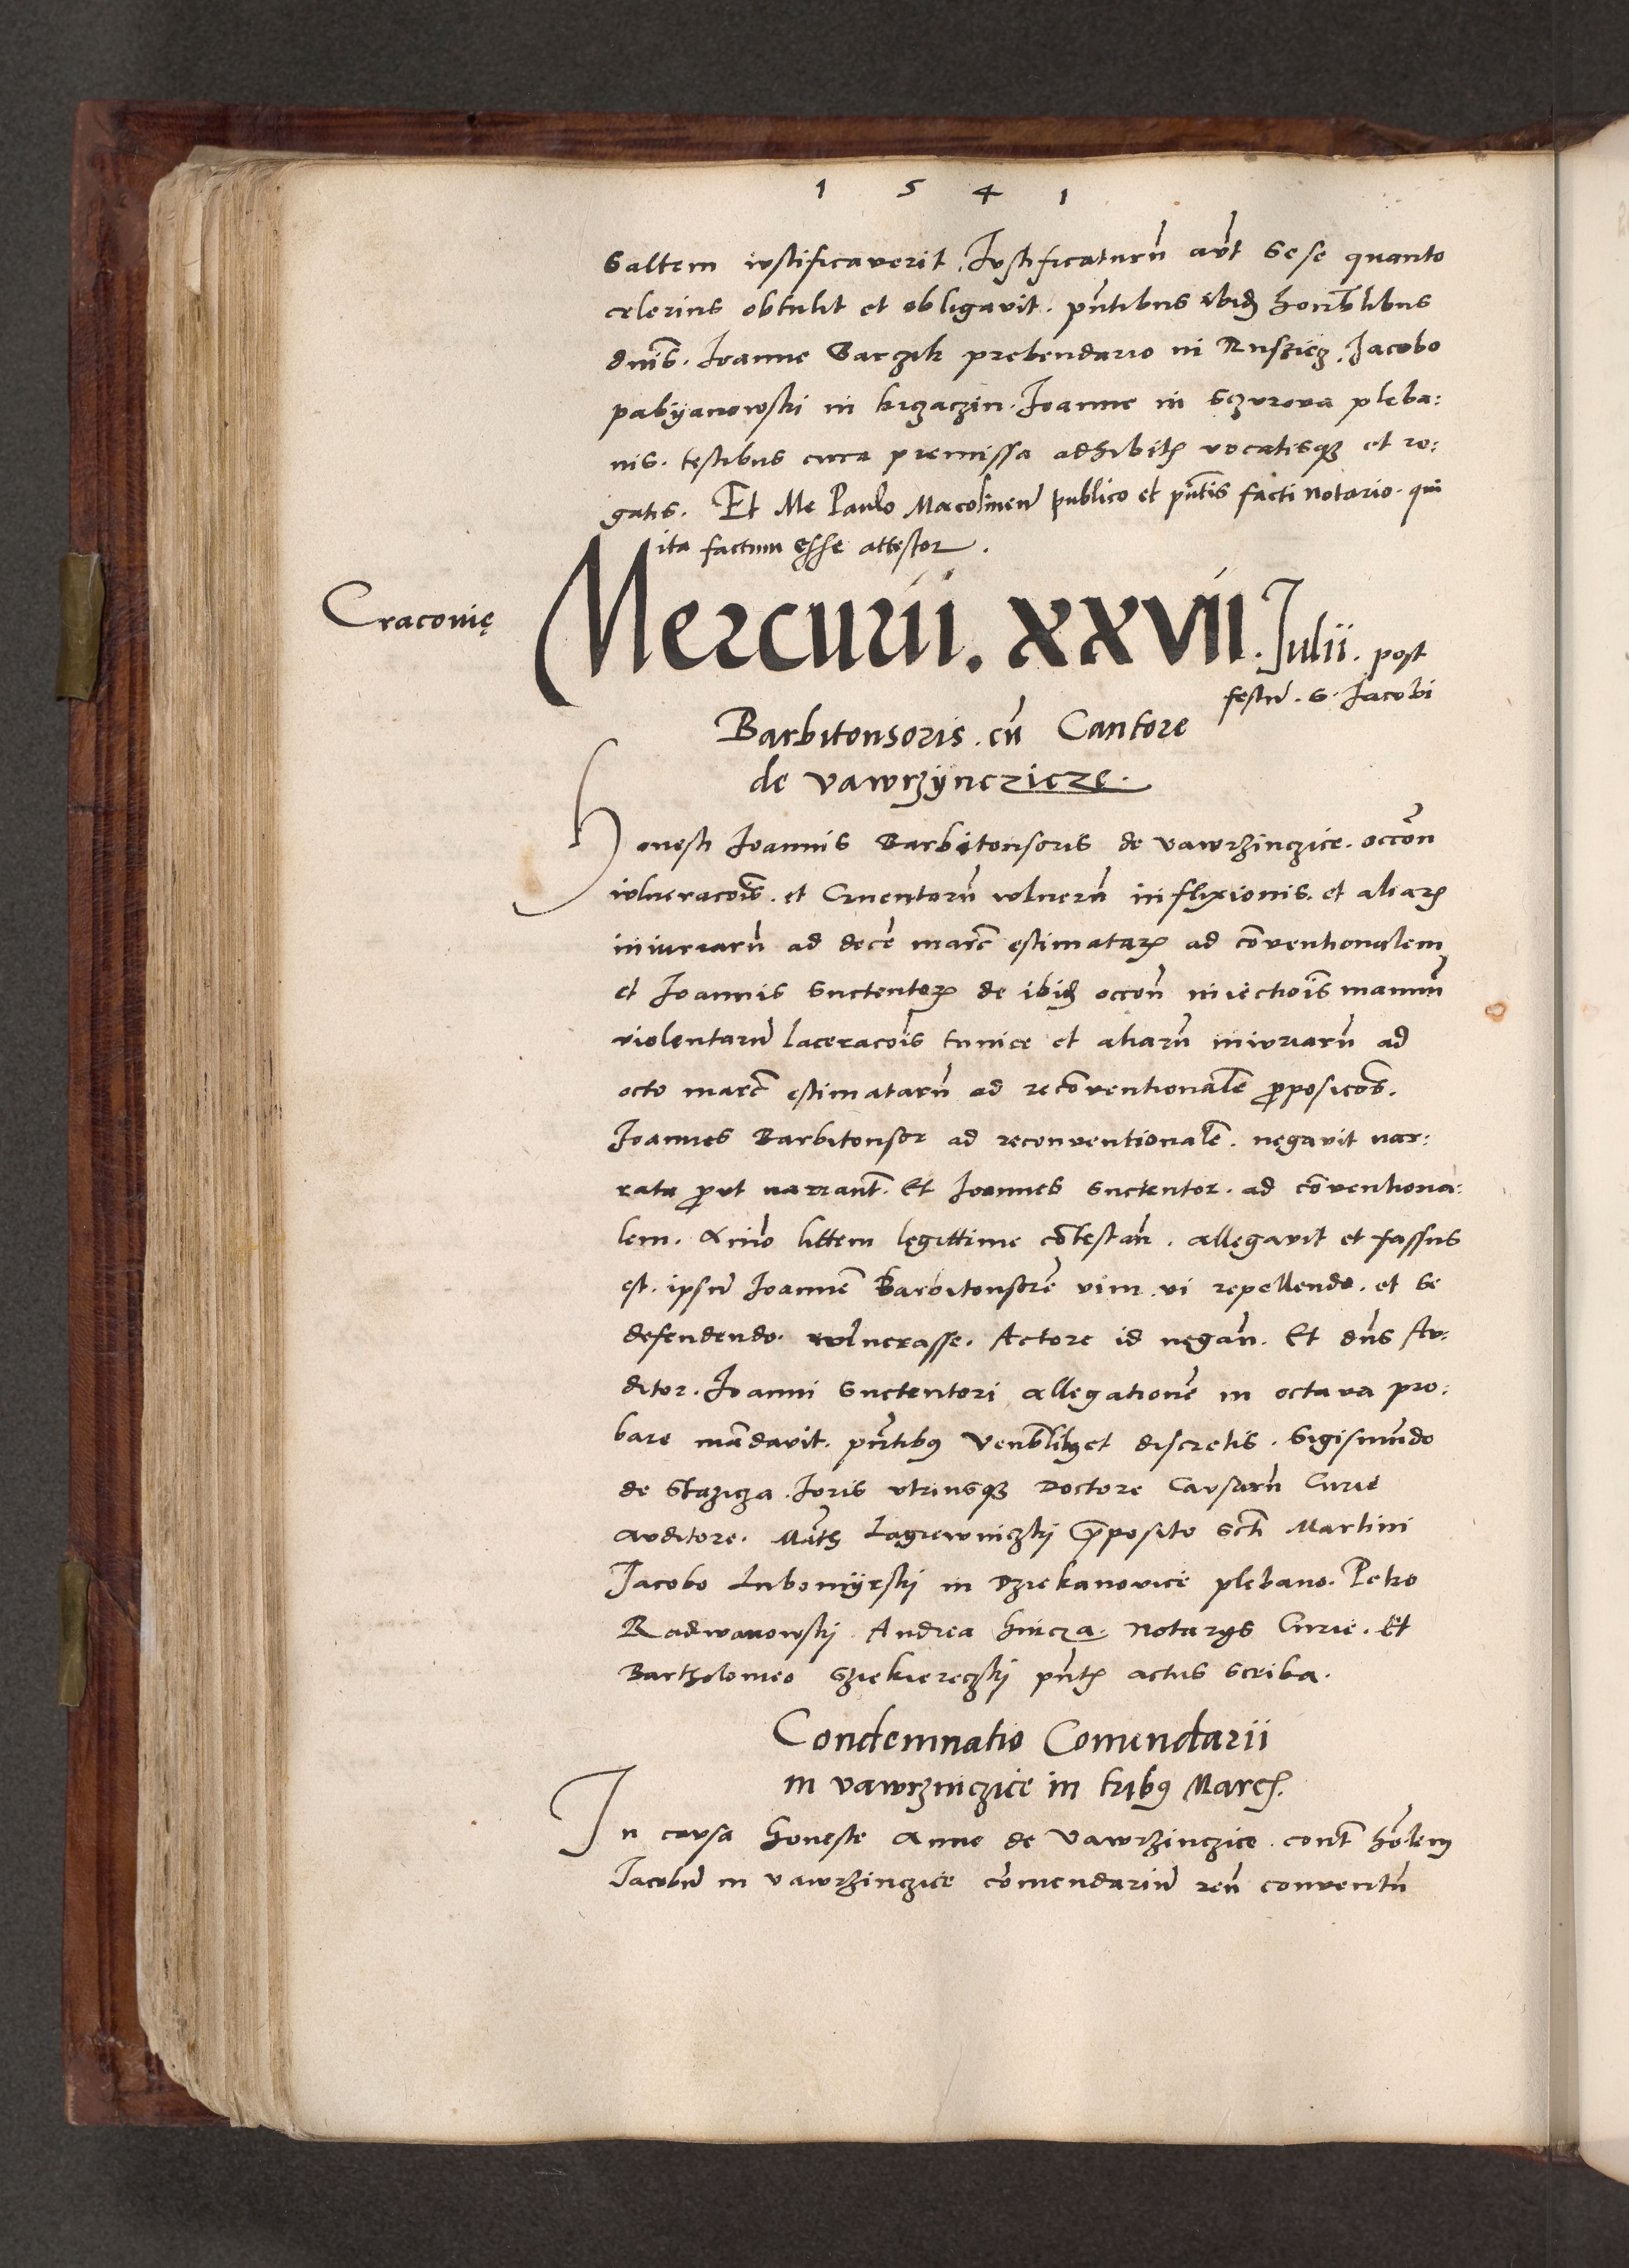 1 5 4 1
Saltem iustificaverit. Iustificaturũ aũt sese quanto
celerius obtulit et obligavit. pñtibus ibidẽ honorabĩlibus
dnĩs. Joanne Barczik prebendario in Jacobo
pabÿanowski in Krzaczin. Joanne in Sczurova pleba:
nis. testibus circa premissa adhibitis vocatisqȝ et ro:
gatis. Et Me Paulo publico et pñtis facti notario. qui
ita factum esse attestor.
Craconię
Mercurii. XXVII. Julii. post
festũ. S. Jacobi
Barbitonsoris. cũ Cantore
de vawrzÿncziczе.
Honesti Joannis Barbitonsoris de vawrzinczice. occõn
wlneracõis. et Cruentorũ wlnerũ inflixionis. et aliarum
iniuriarũ ad decẽ marc̃ estimatarum ad cõventionalem
et Joannis Suctentoris de ibidẽ occõn iniectiõis manuũ
violentarũ laceracõis tunice et aliarũ iniuriarũ ad
octo marc̃ estimatarũ ad recõventionalẽ p̃posicõs.
Joannes Barbitonsor ad reconventionalẽ. negavit nar:
rata p̃ut narrant̃. Et Joannes Suctentor. ad cõventiona:
lem. aĩo littem legittime cõtestañ. allegavit et fassus
est. ipsũ Joannẽ Barbitonsorẽ vim vi repellendo. et se
defendendo. wlnerasse. Actore id negañ. Et dñs Au:
ditor. Joanni Suctentori allegationẽ in octava pro:
bare mãdavit. pñtibus Venũblibus et discretis. Sigismũndo
de Stazicza. Juris utriusqȝ Doctore Causarũ Curie
auditore. Lagiewniczkj p̃posito Scti Martini
Jacobo Lubomÿrskj in Dziekanovice plebano. Petro
Radwanowskj Andrea hincza. Notarÿs Curie. Et
Bartholomeo Sziekiereczkj pñtis actus scriba.
Condemnatio Comendarii
in vawrzinczice in tribus Marcis.
In causa honeste Anne de Vawrzinczice. cont̃ ho͂lem
Jacobũ in vawrzinczice cõmendariũ reũ conventũ